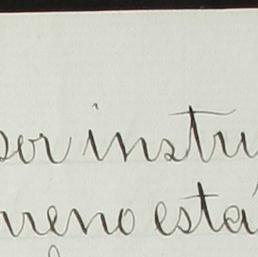 por instru
rreno está